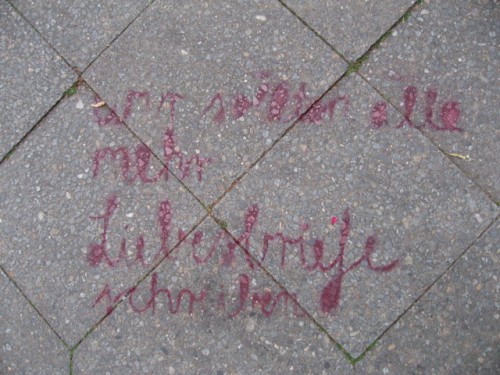 wir sollten alle
mehr
Liebesbriefe
schreiben